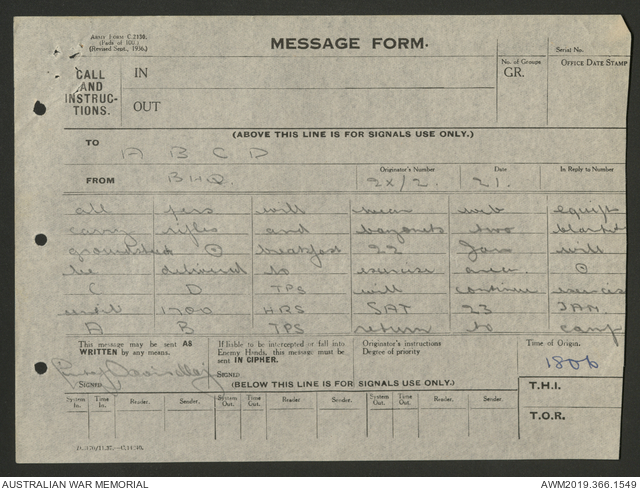 ARMY FORM C.2130.
(Pads of 100.)
(Revised Sept., 1936.)
MESSAGE FORM.
Serial No.
CALL AND INSTRUC-TIONS.
IN
OUT
No. of Groups
GR.
OFFICE DATE STAMP
(ABOVE THIS LINE IS FOR SIGNALS USE ONLY.)
TO
A B C D
FROM
BHQ.
Originator's Number
2X/2.
Date
21.
In Reply to Number
all pers will wear web equipt
carry rifles and bayonets two blanket
groundsheet ⊙ breakfast 22 Jan will
be delivered to exercise area ⊙
C D TPS will continue exercise
until 1700 HRS SAT 23 JAN.
A B TPS return to camp
This message may be sent AS WRITTEN by any means.
If liable to be intercepted or fall into Enemy Hands, this message must be sent IN CIPHER.
Originator's instructions
Degree of priority
Time of Origin.
1806
SIGNED
SIGNED
(BELOW THIS LINE IS FOR SIGNALS USE ONLY.)
T.H.I.
T.O.R.
System In
Time In.
Reader.
Sender.
System Out.
Time Out.
Reader.
Sender.
System Out.
Time Out.
Reader.
Sender.
AUSTRALIAN WAR MEMORIAL
AWM2019.366.1549